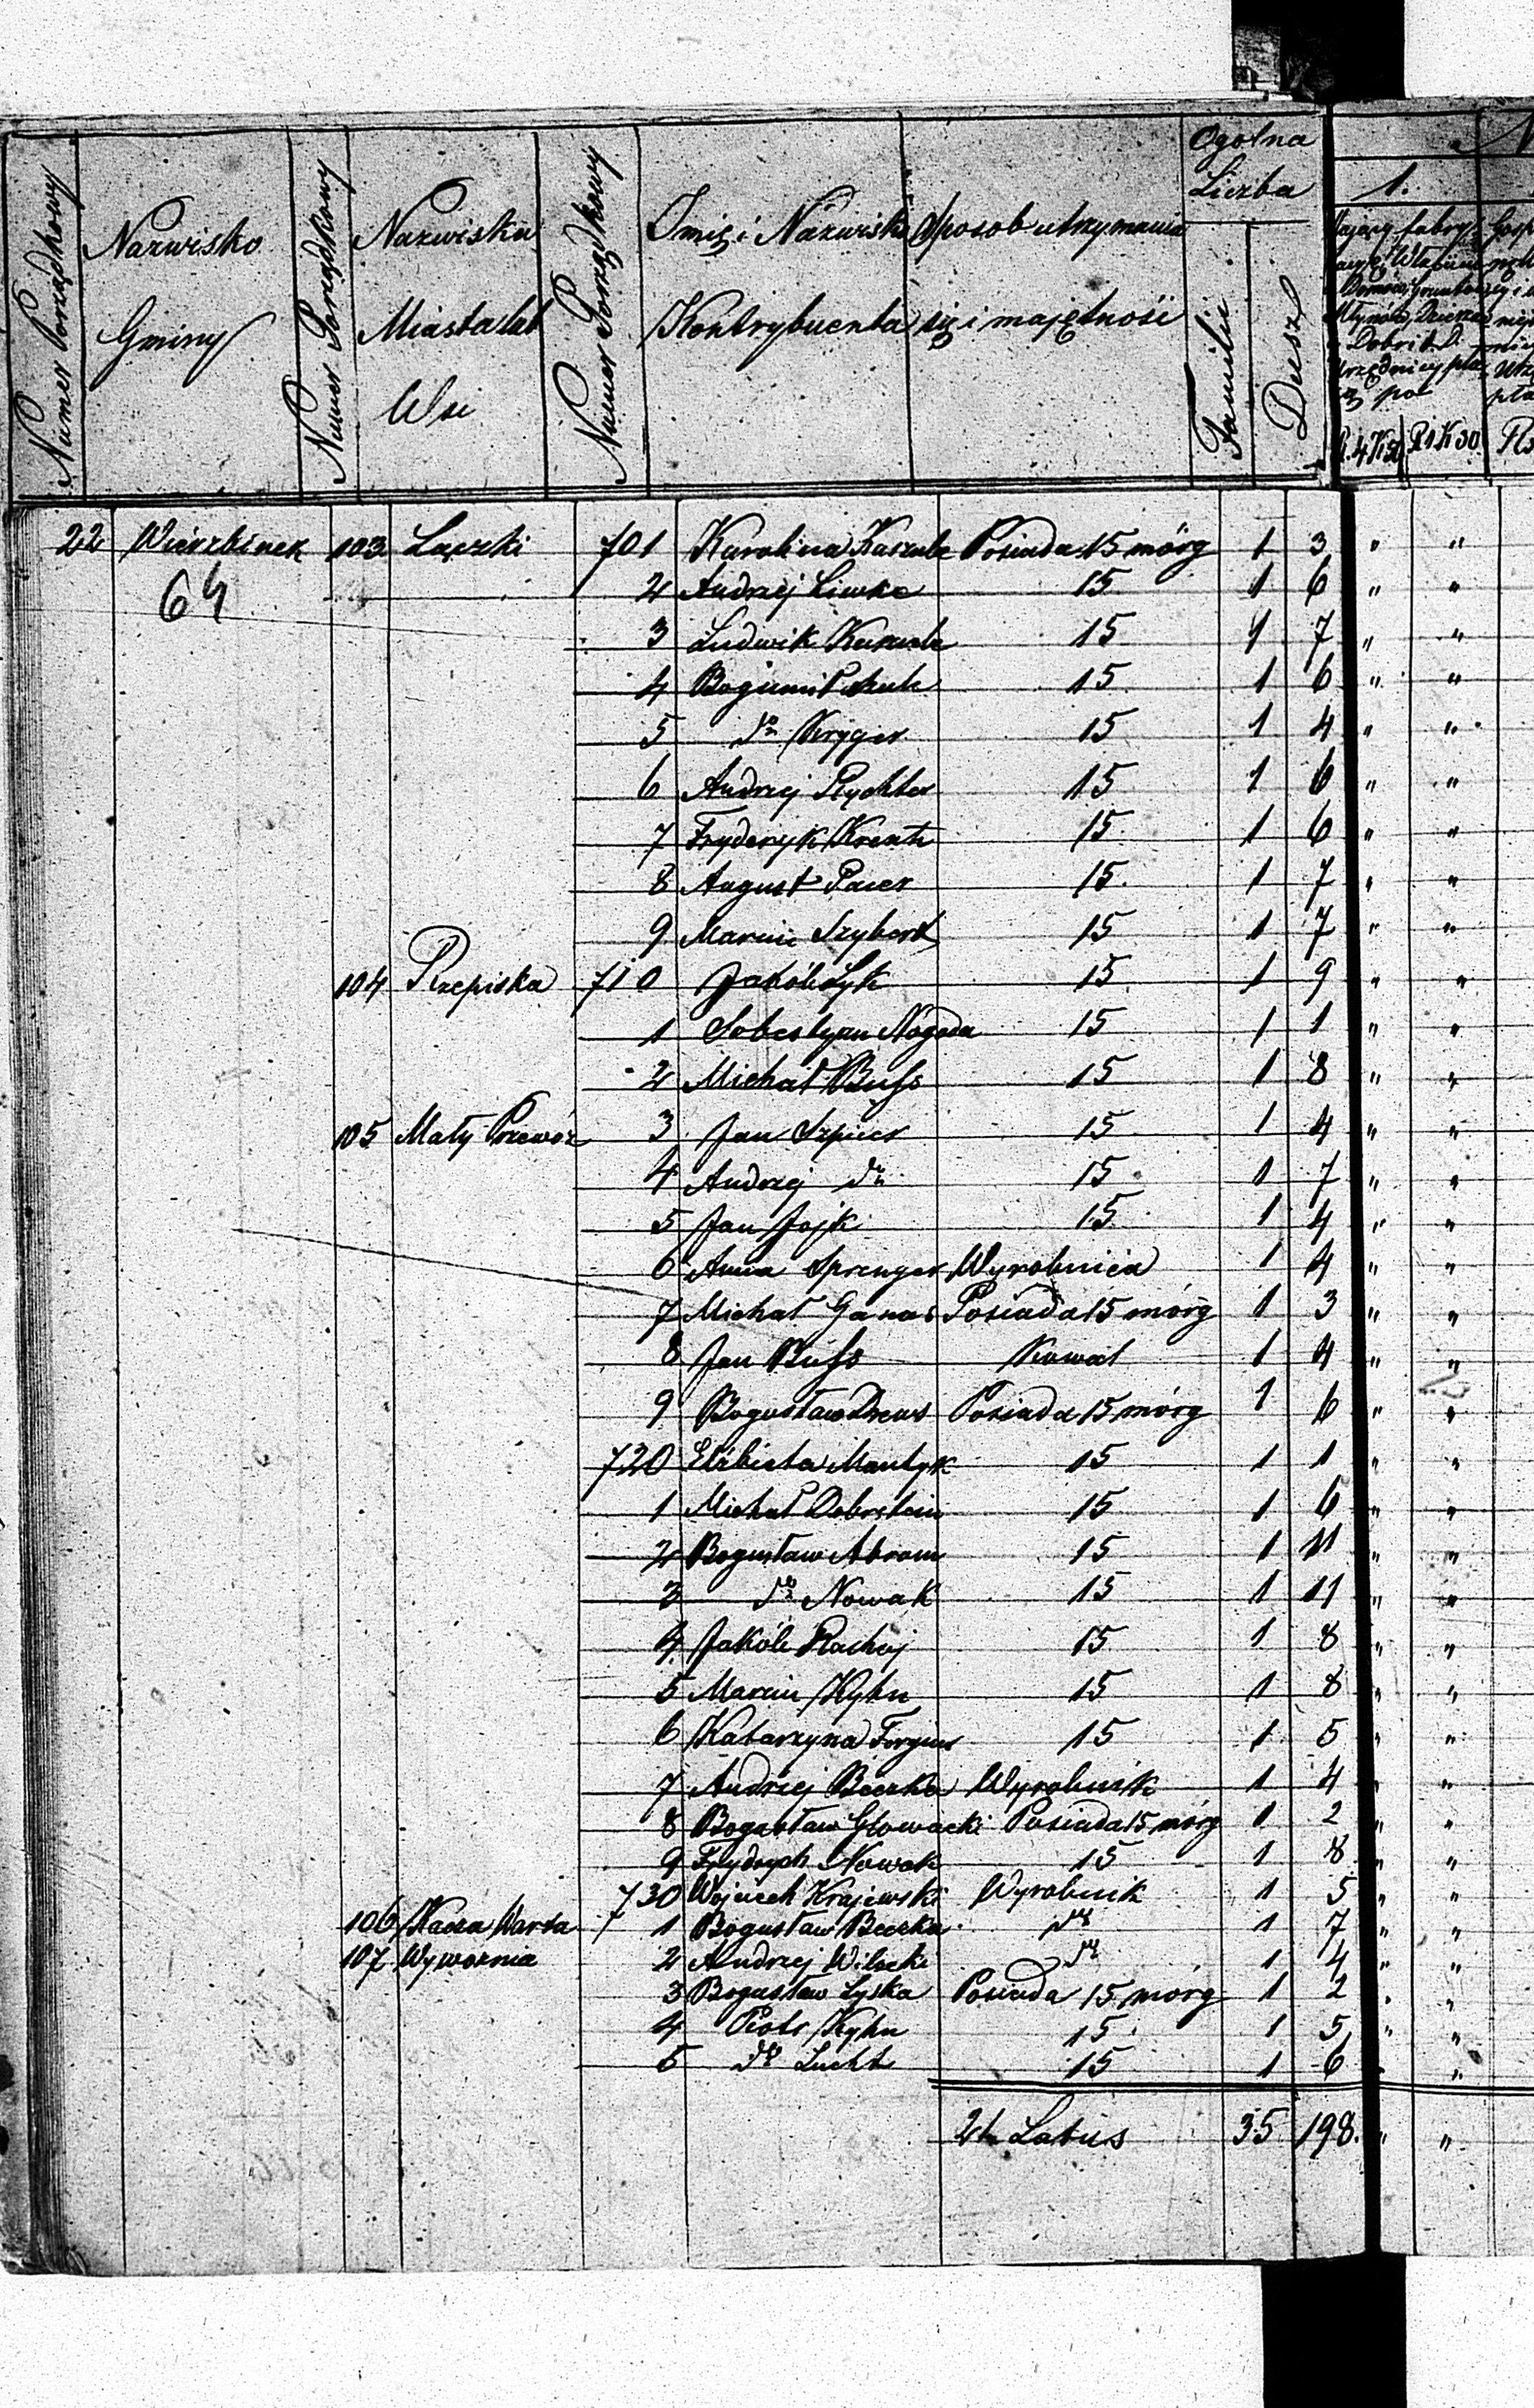 Numer Porządkowy
Nazwisko Gminy
Numer Porządkowy
Nazwisko Miasta lub Wsi
Numer Porządkowy
Imię i Nazwisko Kontrybuenta
Sposob utrzymania się i majętności
Ogolna Liczba
Familii
Dusz
1.
R. 4 K 50 R 1 K 30
22 Wierzbinek 103 Łączki 701 Karolina Kaszube Posiada 15 mórg 1 3 " "
64
2 Andrzej Limke 15 1 6 " "
3 Ludwik Kaszube 15 1 7 " "
4 Bogumił 15 1 6 " "
5 do Kryger 15 1 4 " "
6 Andrzej Rychter 15 1 6 " "
7 Fryderyk 15 1 6 " "
8 August 15 1 7 " "
9 Marcin Szybert 15 1 7 " "
104 Rzepiska 710 Jakób Łyk 15 1 9 " "
1 Sobestyan Nogada 15 1 1 " "
2 Michał Bufs 15 1 8 " "
105 Mały Przewóz 3 Jan Szpier 15 1 4 " "
4 Andrzej do 15 1 7 " "
5 Jan Jojk 15 1 4 " "
6 Anna Sprenger Wyrobnica 1 4 " "
7 Michał Ganas Posiada 15 mórg 1 3 " "
8 Jan Bufs Kowal 1 4 " "
9 Bogusław Drews Posiada 15 mórg 1 6 " "
720 Elżbieta Mantyk 15 1 1 " "
1 Michał Dobrstein 15 1 6 " "
2 Bogusław Abram 15 1 11 " "
3 do Nowak 15 1 11 " "
4 Jakób Rachuj 15 1 8 " "
5 Marcin Kyhn 15 1 8 " "
6 Katarzyna 15 1 5 " "
7 Andrzej Beczka Wyrobnik 1 4 " "
8 Bogusław Głowacki Posiada 15 mórg 1 2 " "
9 Frydrych Nowak 15 1 8 " "
730 Wojciech Krajewski Wyrobnik 1 5 " "
106 Warta 1 Bogusław Beczka do 1 7 " "
107 Wywoznia 2 Andrzej Wilscki do 1 4 " "
3 Bogusław Łyska Posiada 15 mórg 1 2 " "
4 Piotr Kyhn 15 1 5 " "
5 do Lucht 15 1 6 " "
Latus 35 198. " "